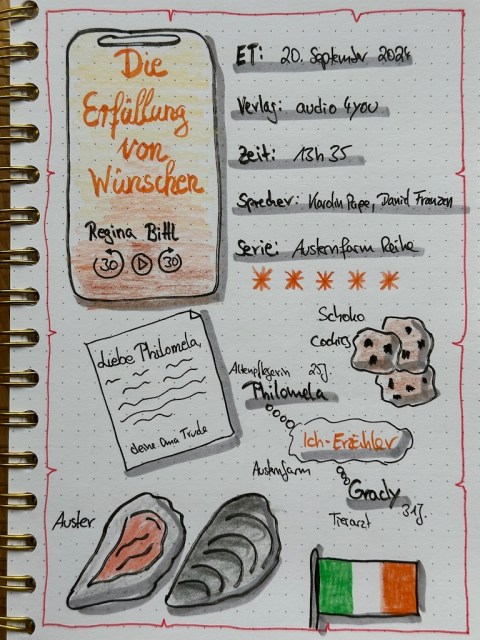 Die
Erfüllung
von
Wünschen
Regina Bittl
30 30
ET: 20. September 2024
Verlag: audio 4you
Zeit: 13h 35
Sprecher: Karolin Pape, David Franzen
Serie: Austernfarm Reihe
Liebe Philomela,
deine Oma Trude
Schoko
Cookies
Altenpflegerin 25J.
Philomela
Ich-Erzähler
Austernfarm
Grady
Tierarzt 31J.
Auster